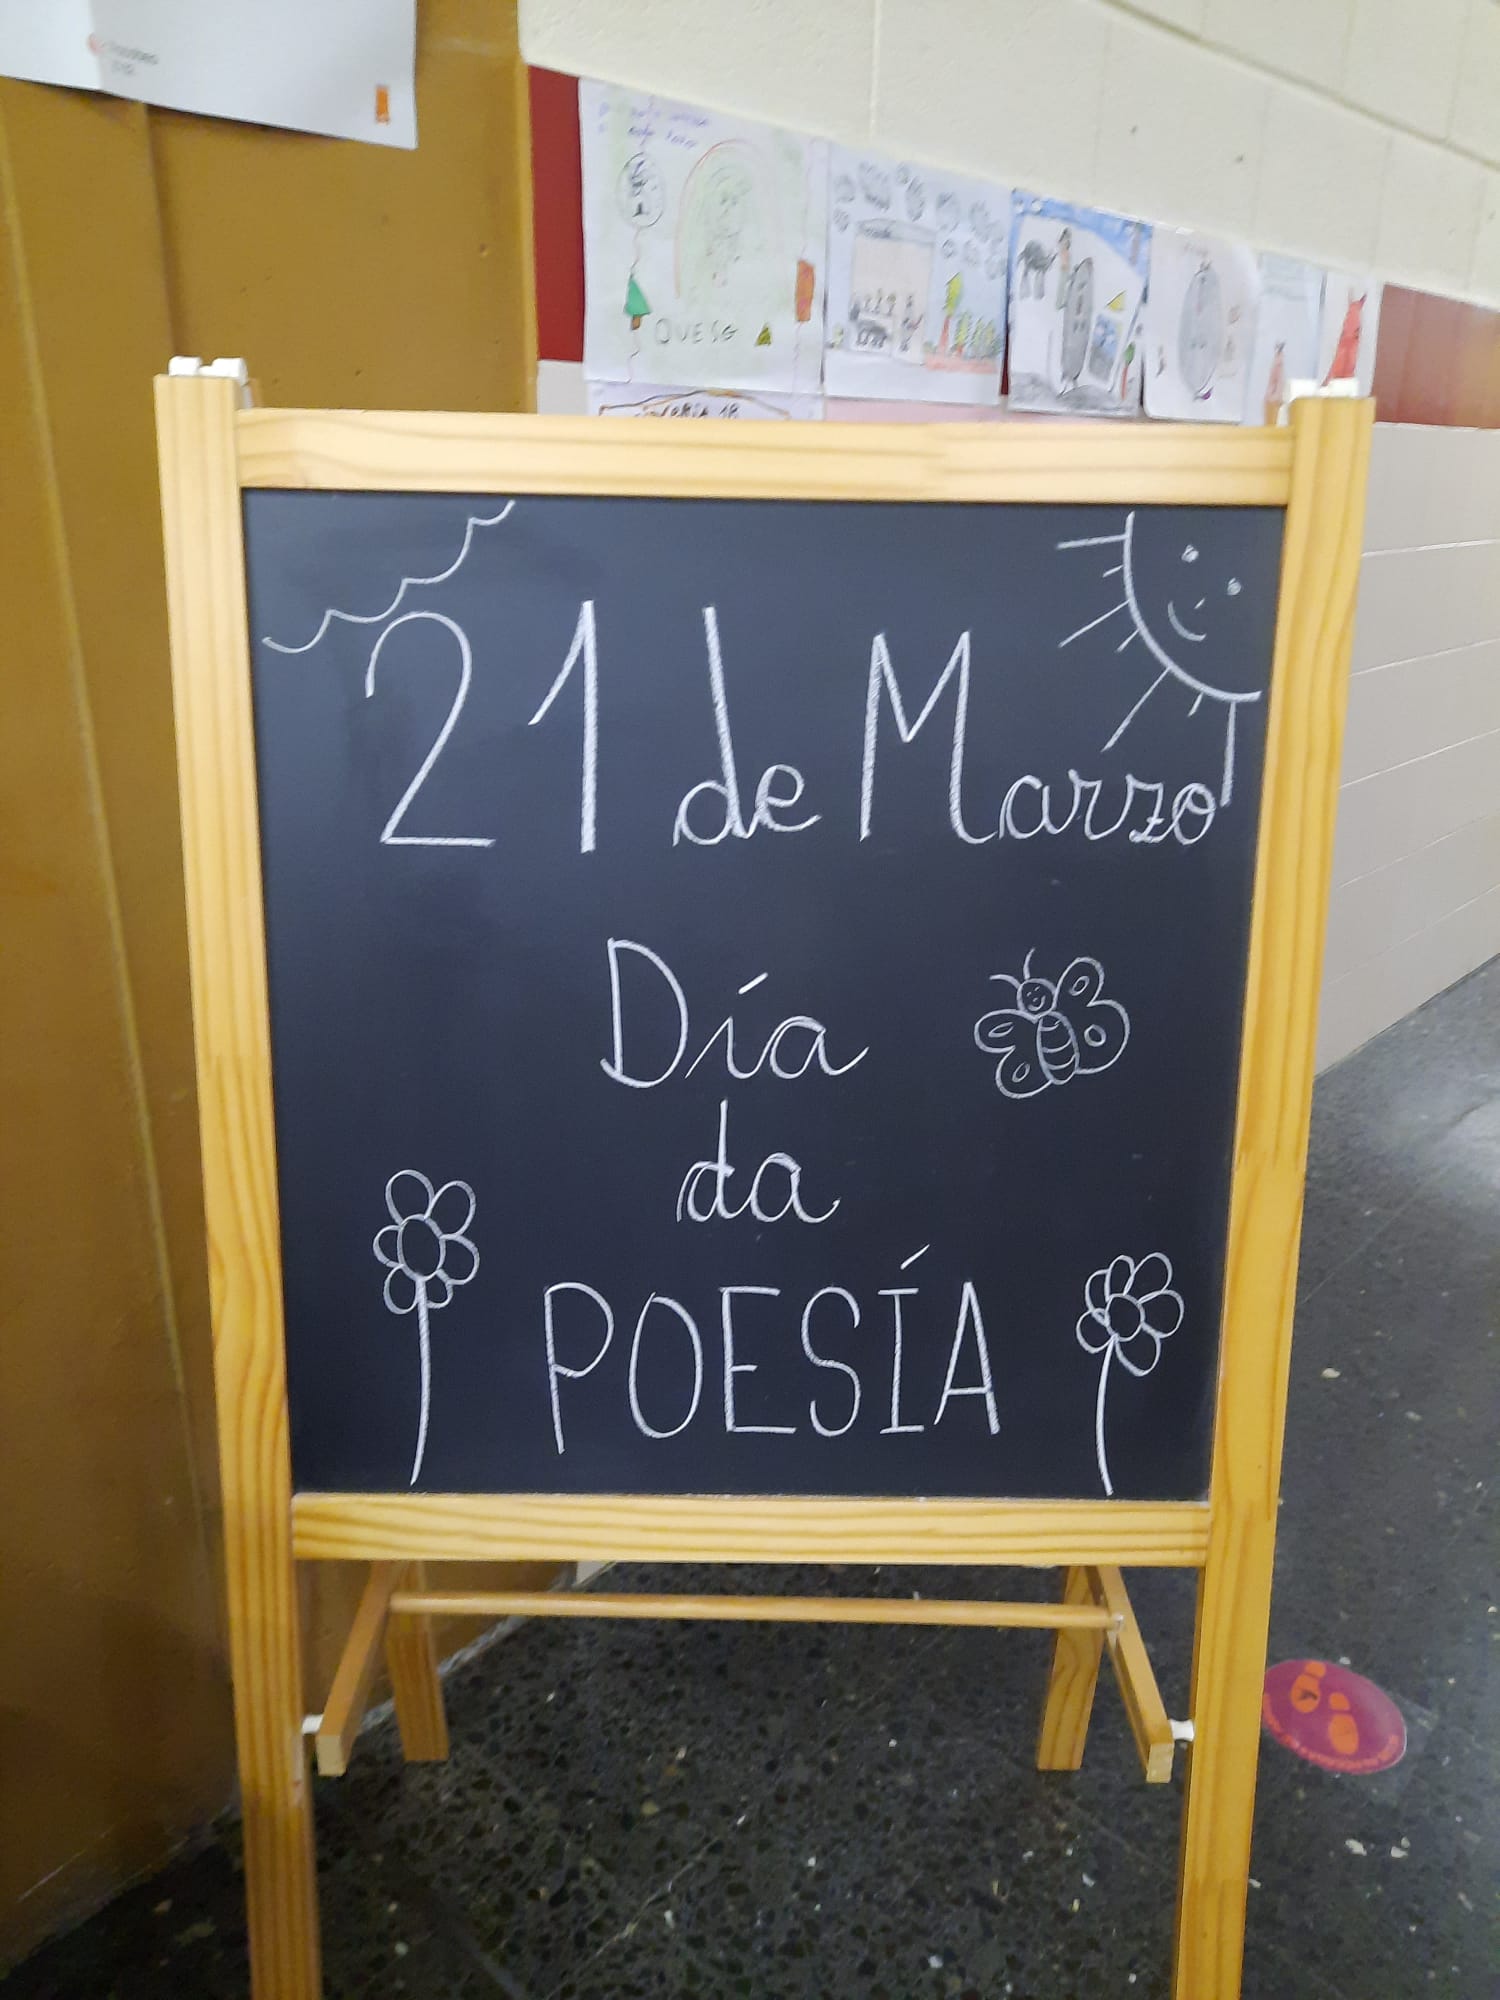 QUESO
21 de Marzo
Día
da
POESÍA